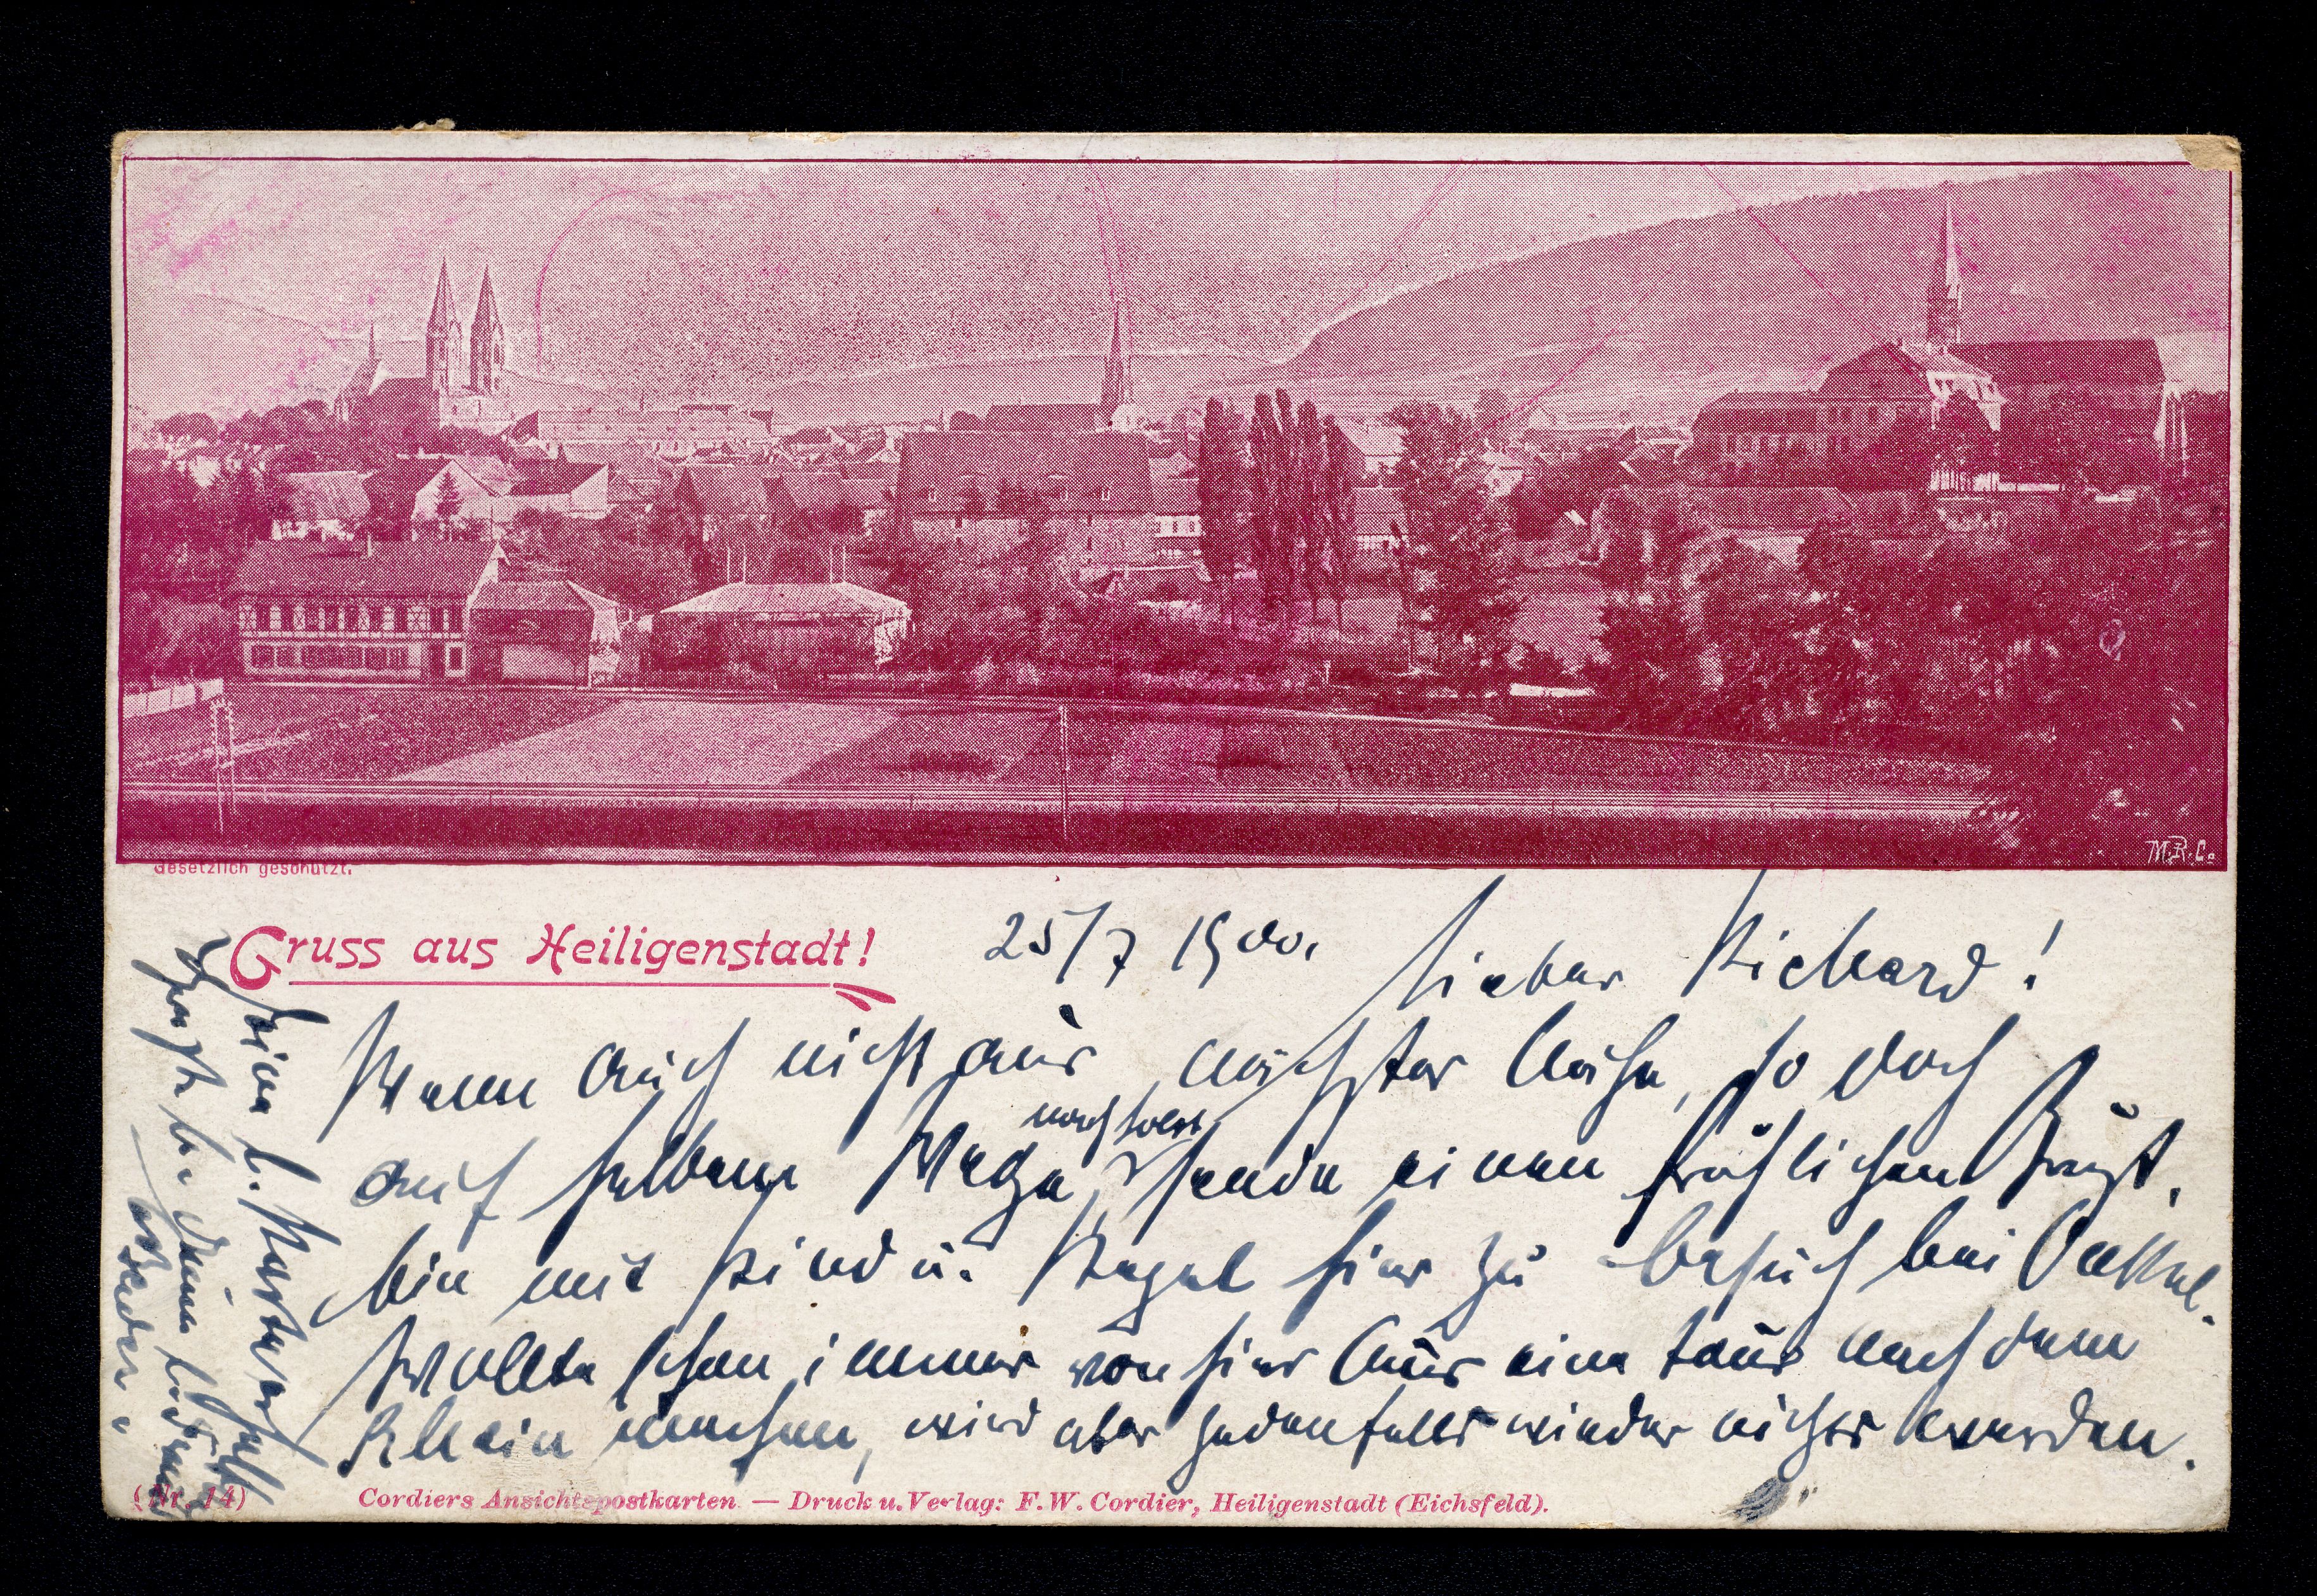 M.R.Co
Gesetzlich geschützt.
Gruss aus Heiligenstadt!
25/7 1900.
Lieber Richard!
Wenn auch nicht aus nächster Nähe, so doch
auf halbem Wege, sende einen fröhlichen Gruß,
bin mit Kind u. Kegel hier zu Besuch bei Onkel.
Wollte schon immer von hier aus eine Tour nach dem
Rhein machen, wird aber jedenfalls wieder nichts werden.
Grüße l.
(Nr. 14)
Cordiers Ansichtspostkarten. — Druck u. Verlag: F. W. Cordier, Heiligenstadt (Eichsfeld).